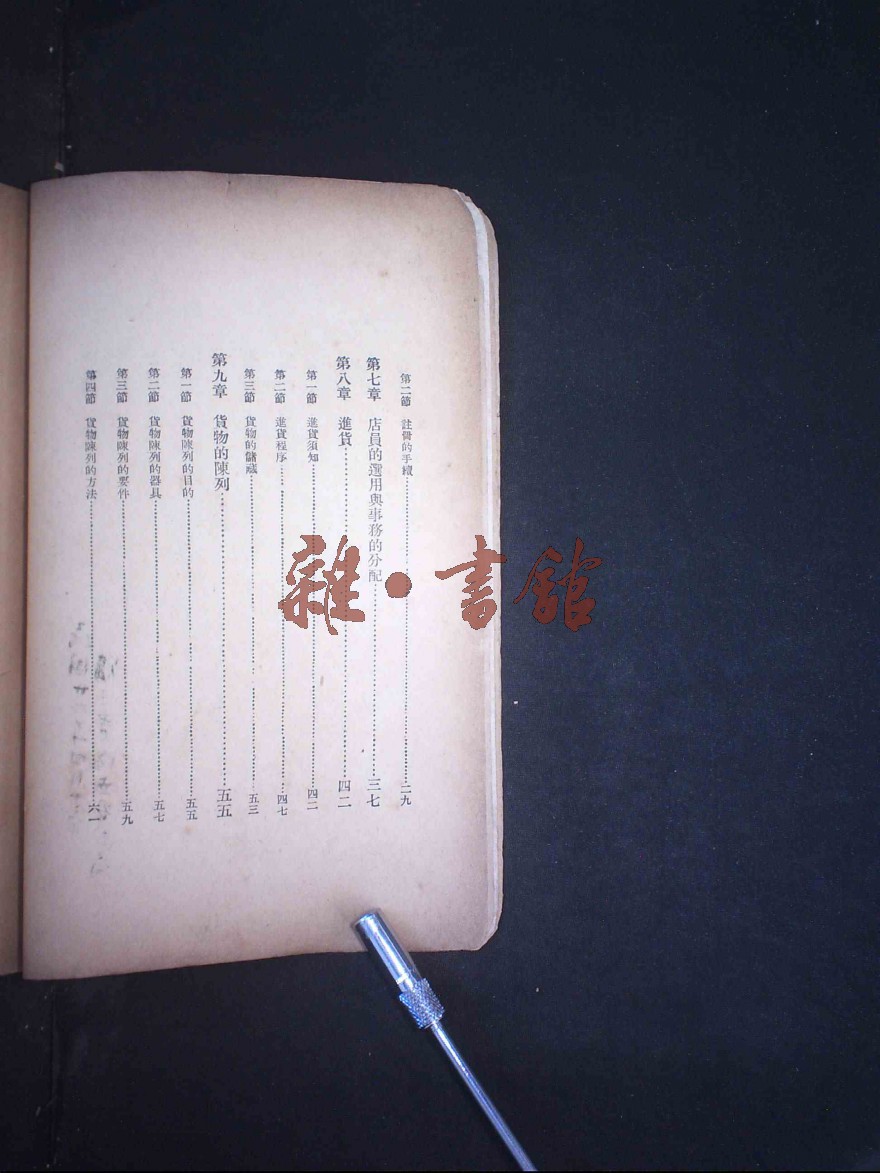 第二節 註冊的手續 二九
第七章 店員的選用與事務的分配 三七
第八章 進貨 四二
第一節 進貨須知 四二
第二節 進貨程序 四七
第三節 貨物的儲藏 五三
第九章 貨物的陳列 五五
第一節 貨物陳列的目的 五五
第二節 貨物陳列的器具 五七
第三節 貨物陳列的要件 五九
第四節 貨物陳列的方法 六一
雜·書館